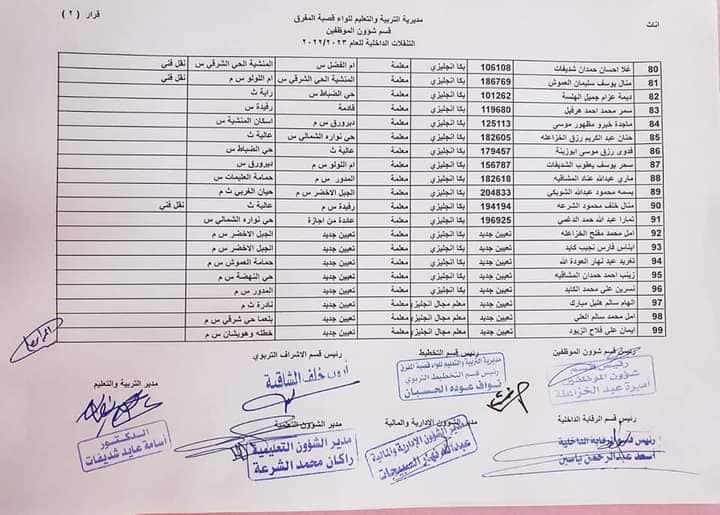 قرار ( ٢ )
مديرية التربية والتعليم للواء قصبة المفرق
اناث
قسم شؤون الموظفين
التنقلات الداخلية للعام ٢٠٢٢/٢٠٢٣
80 علا احسان حمدان شديفات 106108 بكا انجليزي معلمة ام الفضل س المنشية الحي الشرقي س نقل فني
81 منال يوسف سليمان العموش 186769 بكا انجليزي معلمة المنشية الحي الشرقي س ام اللولو س م نقل فني
82 ديمة عزام جميل الهلسة 101262 بكا انجليزي معلمة حي الضباط س رابة ث
83 سمر محمد احمد هرفيل 119680 بكا انجليزي معلمة قادمة رفيدة س
84 ماجدة خيرو مظهور موسى 125113 بكا انجليزي معلمة ديرورق س م اسكان المنشية س
85 حنان عبد الكريم رزق الخزاعله 182605 بكا انجليزي معلمة حي نواره الشمالي س عالية ث
86 فدوى رزق موسى ابوزينة 179457 بكا انجليزي معلمة عالية ث حي الضباط س
87 سحر يوسف يعقوب الشديفات 156787 بكا انجليزي معلمة ام اللولو س م ديرورق س
88 ماري عبدالله عناد المشاقبه 182618 بكا انجليزي معلمة المدور س م حمامة العليمات س
89 بسمه محمود عبدالله الشويكي 204833 بكا انجليزي معلمة الجبل الاخضر س م حيان الغربي ث م
90 منال خلف محمود الشرعه 194194 بكا انجليزي معلمة رفيدة س م عالية ث نقل فني
91 تمارا عبد الله حمد الدغمي 196925 بكا انجليزي معلمة عائدة من اجازة حي نواره الشمالي س
92 امل محمد مفلح الخزاعله تعيين جديد بكا انجليزي معلمة تعيين جديد الجبل الاخضر س م
93 ايناس فارس نجيب كايد تعيين جديد بكا انجليزي معلمة تعيين جديد الجبل الاخضر س م
94 تغريد عبد نهار العودة الله تعيين جديد بكا انجليزي معلمة تعيين جديد حمامة العموش س م
95 زينب احمد حمدان المشاقبه تعيين جديد بكا انجليزي معلمة تعيين جديد حي النهضة س م
96 نسرين علي محمد الكايد تعيين جديد بكا انجليزي معلمة تعيين جديد المدور س م
97 الهام سالم هليل مبارك تعيين جديد معلم مجال انجليزي معلمة تعيين جديد نادرة ث م
98 امل محمد سالم العلي تعيين جديد معلم مجال انجليزي معلمة تعيين جديد بلعما حي شرقي س م
99 ايمان علي فلاح الزيود تعيين جديد معلم مجال انجليزي معلمة تعيين جديد خطله وهويشان س م
رئيس قسم شؤون الموظفين
رئيس قسم شؤون الموظفين
أميرة عيد الخزاعلة
رئيس قسم التخطيط
مديرية التربية والتعليم للواء قصبة المفرق
رئيس قسم التخطيط التربوي
نواف عوده الحسبان
رئيس قسم الاشراف التربوي
أ.رون خلف الشاقبة
مدير التربية والتعليم
الدكتور
أسامة عايد شديفات
رئيس قسم الرقابة الداخلية
رئيس قسم الرقابة الداخلية
اسعد عبدالرحمن ياسين
مدير الشؤون الإدارية والمالية
مدير الشؤون الإدارية والمالية
مدير الشؤون التعليمية
مدير الشؤون التعليمية
راكان محمد الشرعة